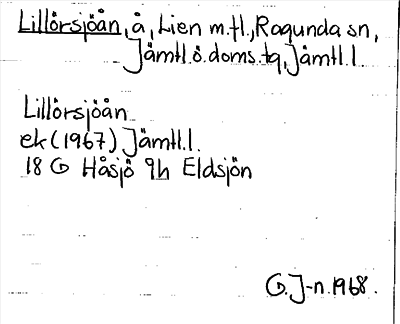 Lillörsjöån, å, Lien m.fl., Ragunda sn,
Jämtl.ö.doms.tg, Jämtl.l.
Lillörsjöån
ek (1967) Jämtl.l.
18 G Håsjö 9h Eldsjön
G. J-n. 1968.